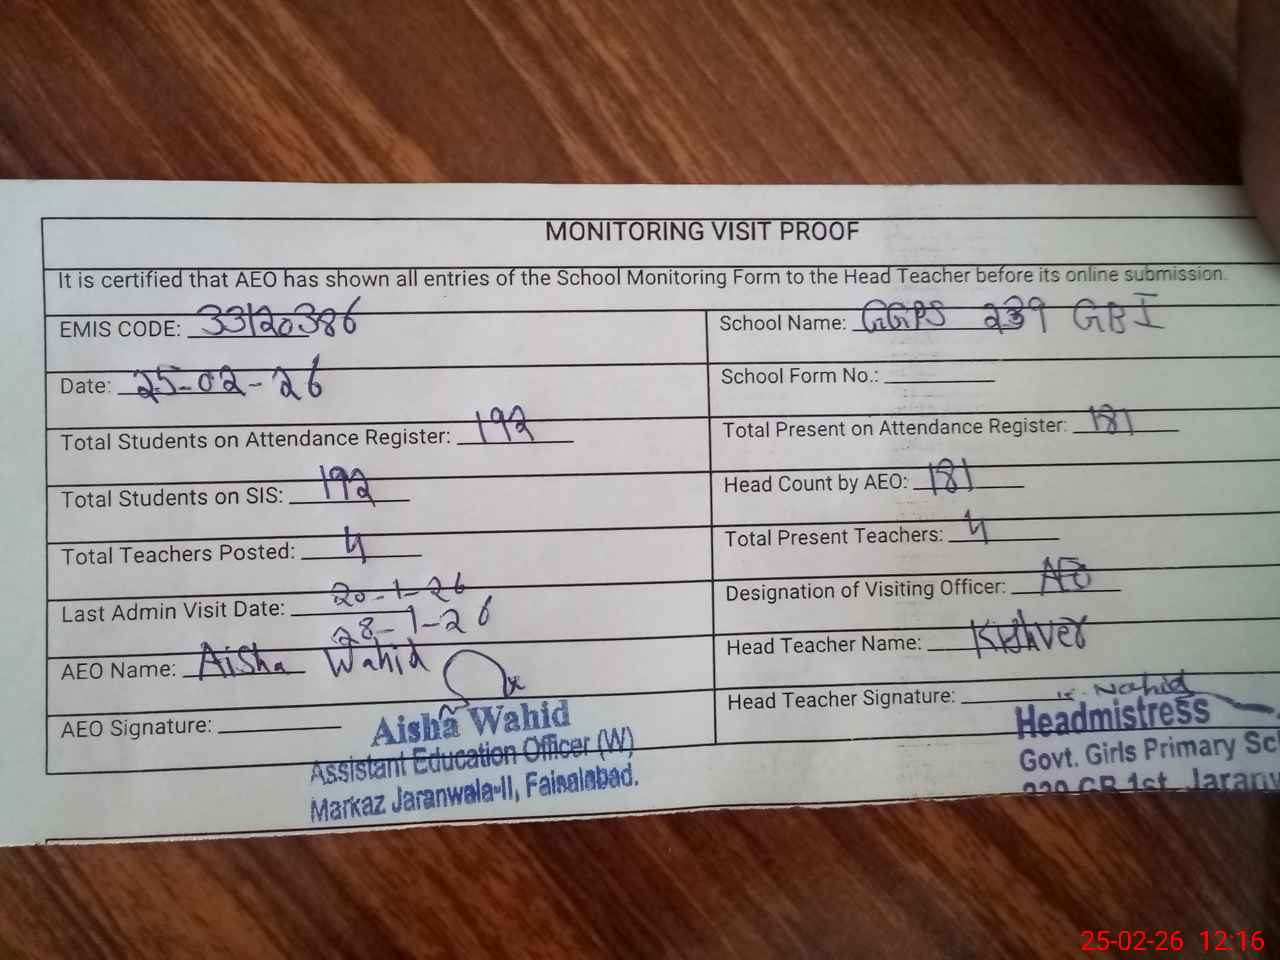 MONITORING VISIT PROOF
It is certified that AEO has shown all entries of the School Monitoring Form to the Head Teacher before its online submission.
EMIS CODE: 33120386
School Name: GGPS 239 GB I
Date: 25-02-26
School Form No.:
Total Students on Attendance Register: 192
Total Present on Attendance Register: 181
Total Students on SIS: 192
Head Count by AEO: 181
Total Teachers Posted: 4
Total Present Teachers: 4
Last Admin Visit Date: 20-1-26
28-1-26
Designation of Visiting Officer: AEO
AEO Name: Aisha Wahid
Head Teacher Name: Kishver
AEO Signature:
Head Teacher Signature: K. Nahid
Aisha Wahid
Assistant Education Officer (W)
Markaz Jaranwala-II, Faisalabad.
Headmistress
Govt. Girls Primary Sc
GB 1st, Jaranw
25-02-26 12:16